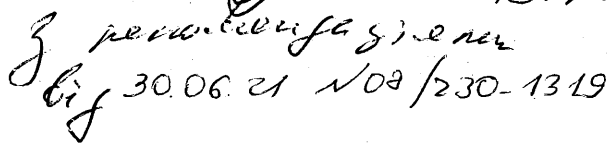 з рекомендаціями
від 30.06.21 №08/230-1319